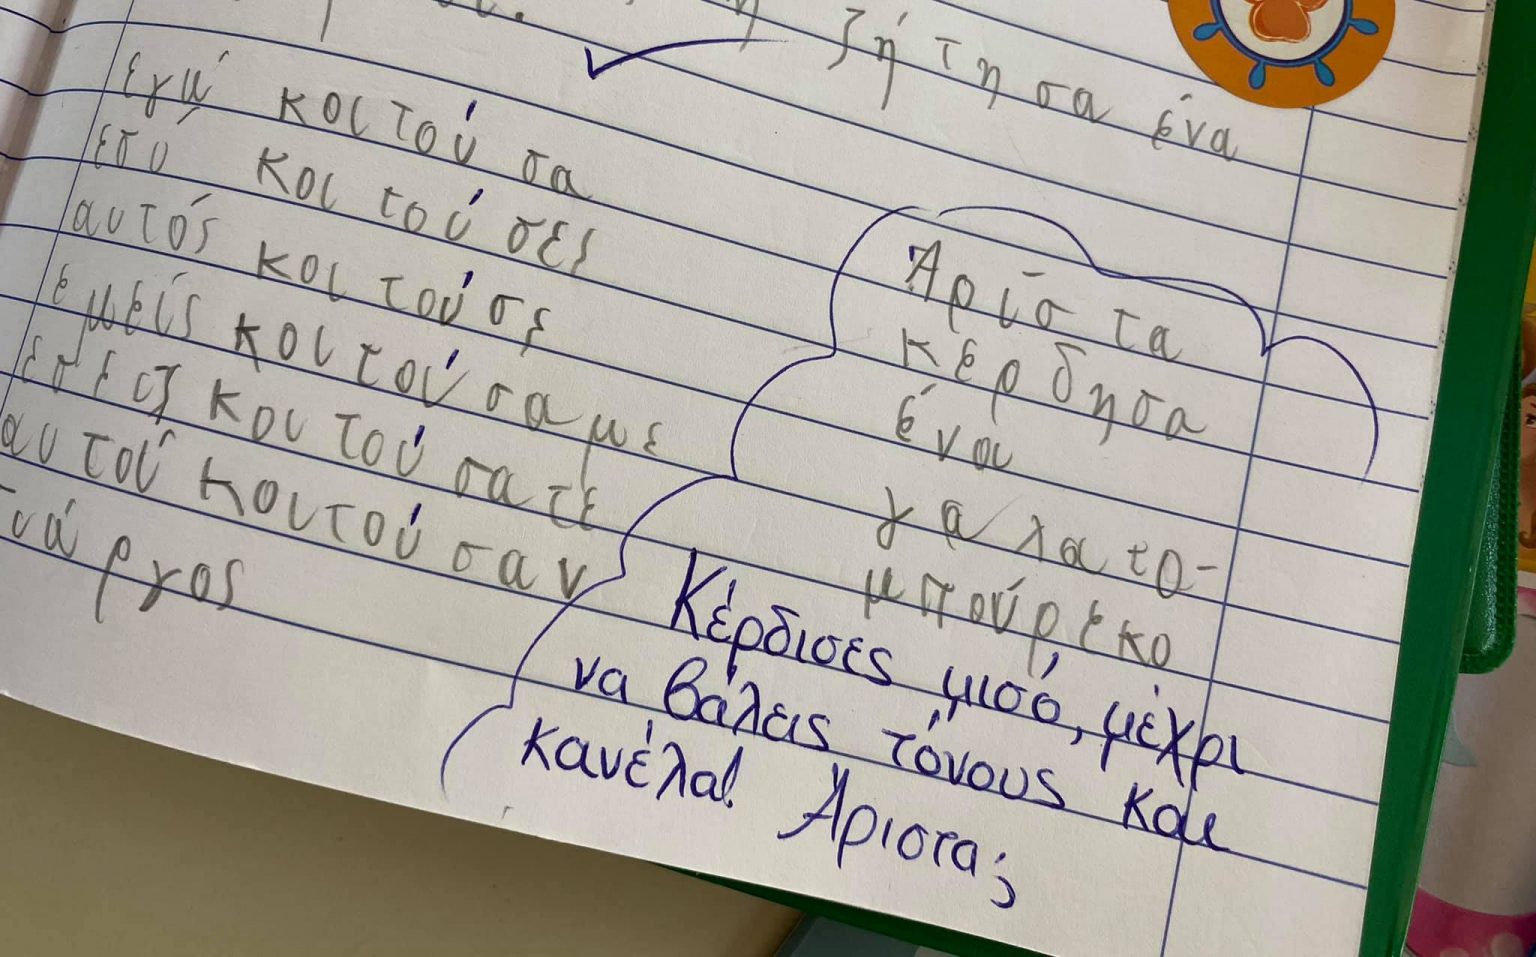 ζήτησα ένα
εγώ κοιτούσα
εσύ κοιτούσες
αυτός κοιτούσε
εμείς κοιτούσαμε
εσείς κοιτούσατε
αυτοί κοιτούσαν
Άρίστα
κέρδησα
ένα
γαλατο-
μπούρεκο
Κέρδισες μισό, μέχρι
να βάλεις τόνους και
κανέλα! Άριστα;